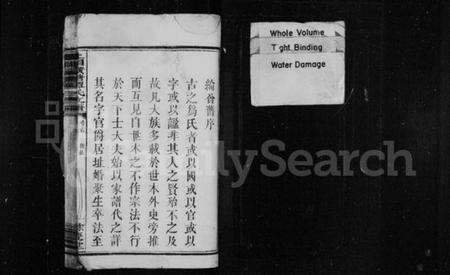 綸谷舊序
古之爲氏者或以國或以官或以
字或以諡非其人之賢殆不之及
故凡大族多藏於世本外史旁推
而互見自世本之不作宗法不行
於天下士大夫始以家譜代之詳
其名字官階居址婚聚生卒法至
Whole Volume
Tight Binding
Water Damage
FamilySearch